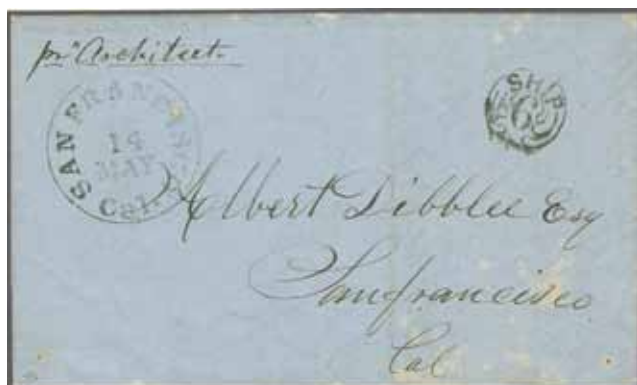 pr Architect
SAN FRANCISCO
14
MAY
Cal.
SHIP
6
Albert Dibblee Esq
Sanfrancisco
Cal